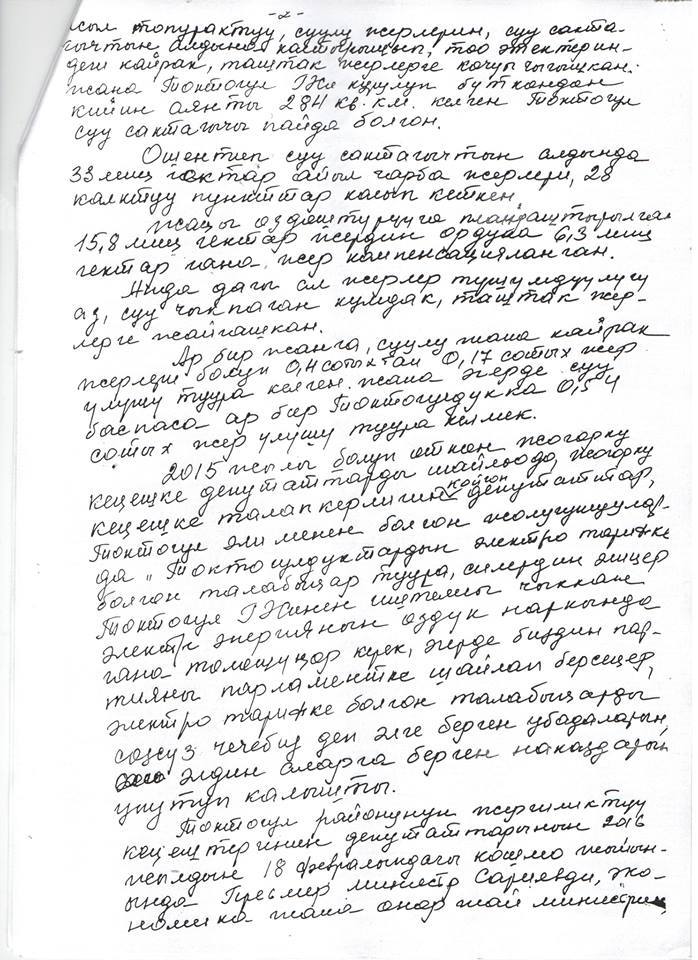 -2-
сыл топурактуу, суулу жерлерин, суу сакта-
гычтын алдында калтырышып, тоо этектерин-
деги кайрак, таштак жерлерге көчүп чыгышкан.
жана Токтогул ГЭСи курулуп бүткөндөн
кийин аянты 284 кв. км. келген Токтогул
суу сактагычы пайда болгон.
Ошентип суу сактагычтын алдында
33 миң гектар айыл чарба жерлери, 28
калктуу пункттар калып кеткен,
жаңы өздөштүрүүгө пландаштырылган
15,8 миң гектар жердин ордуна 6,3 миң
гектар гана жер компенсацияланган.
Анда дагы ал жерлер түшүмдүүлүгү
аз, суу чыкпаган кумдак, таштак жер-
лерге жайгашкан.
Ар бир жанга, суулу жана кайрак
жерлери болуп 0,4 сотыхтан 0,17 сотых жер
үлүшү туура келген. жана эгерде суу
баспаса ар бир Токтогулдукка 0,54
сотых жер үлүшү туура келмек.
2015 жылы болуп өткөн жогорку
кеңешке депутаттарды шайлоодо, жогорку
кеңешке талапкерлигин койгон депутаттар,
Токтогул эли менен болгон жолугушуулар-
да „Токтогулдуктардын электро тарифке
болгон талабыңар туура, силердин жиңер
Токтогул ГЭСинен иштелип чыккан
электр энергиянын өздүк наркында
гана төлөшүңөр керек, эгерде биздин пар-
тияны парламентке шайлап берсеңер,
электро тарифке болгон талабыңарды
сөзсүз чечебиз деп элге берген убадаларын,
элдин аларга берген наказдарын
унутуп калышты.
Токтогул районунун жергиликтүү
кеңештеринин депутаттарынын 2016
жылдын 18 февралындагы кошмо жыйын-
ында Премьер министр Сариевди, эко-
номика жана өнөр жай министрин,